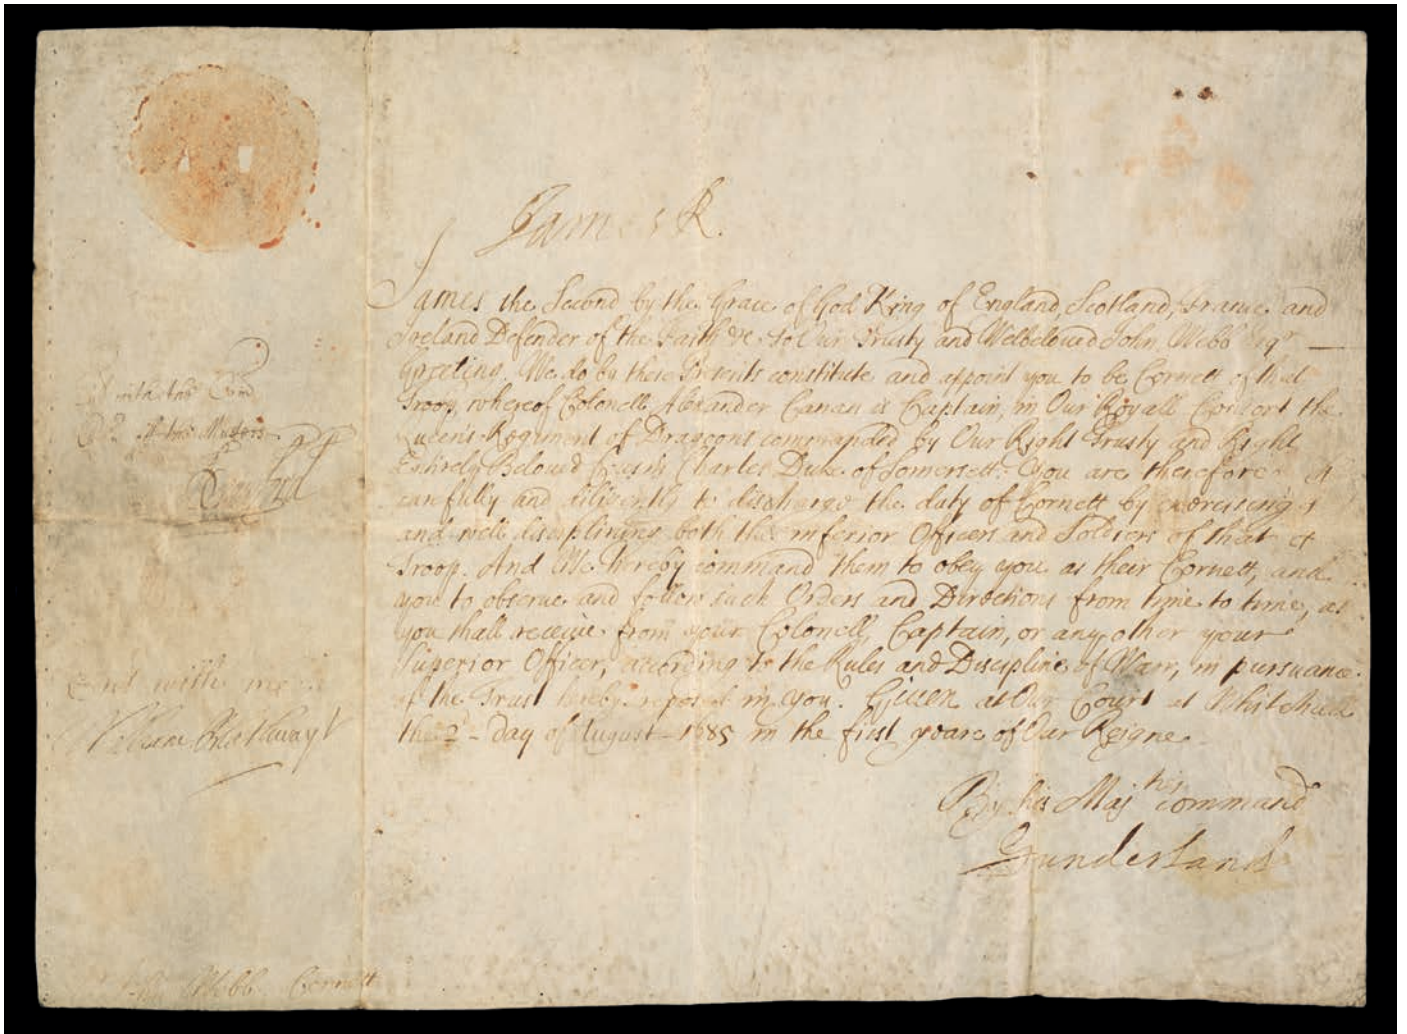 James R.
James the Second by the Grace of God King of England, Scotland, France and
Ireland Defender of the Faith &c. To Our Trusty and Welbeloved John Webb Esqr
Greeting. We do by these Presents constitute and appoint you to be Cornett of that
Troop, whereof Colonell Alexander Canan is Captain, in Our Royall Consort the
Queen's Regiment of Dragoons commanded by Our Right Trusty and Right
Entirely Beloved Cousin Charles Duke of Somersett. You are therefore
carefully and diligently to discharge the duty of Cornett by exercising
and well disciplining both the inferior Officers and Soldiers of that
Troop. And We hereby command them to obey you as their Cornett, and
you to observe and follow such Orders and Directions from time to time, as
you shall receive from your Colonell, Captain, or any other your
Superior Officer, according to the Rules and Discipline of Warr, in pursuance
of the Trust hereby reposed in you. Given at Our Court at Whitehall
the 2d day of August 1685 in the first yeare of Our Reigne.
By his Majties command
Sunderland
Entd with the Com
Genll of the Musters
Entd with me
William Blathwayt
John Webb Cornett